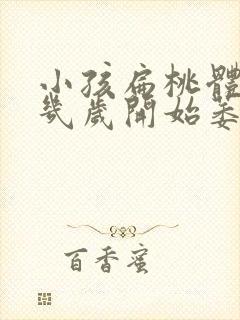 小孩扁桃體
幾歲開始萎
百香蜜